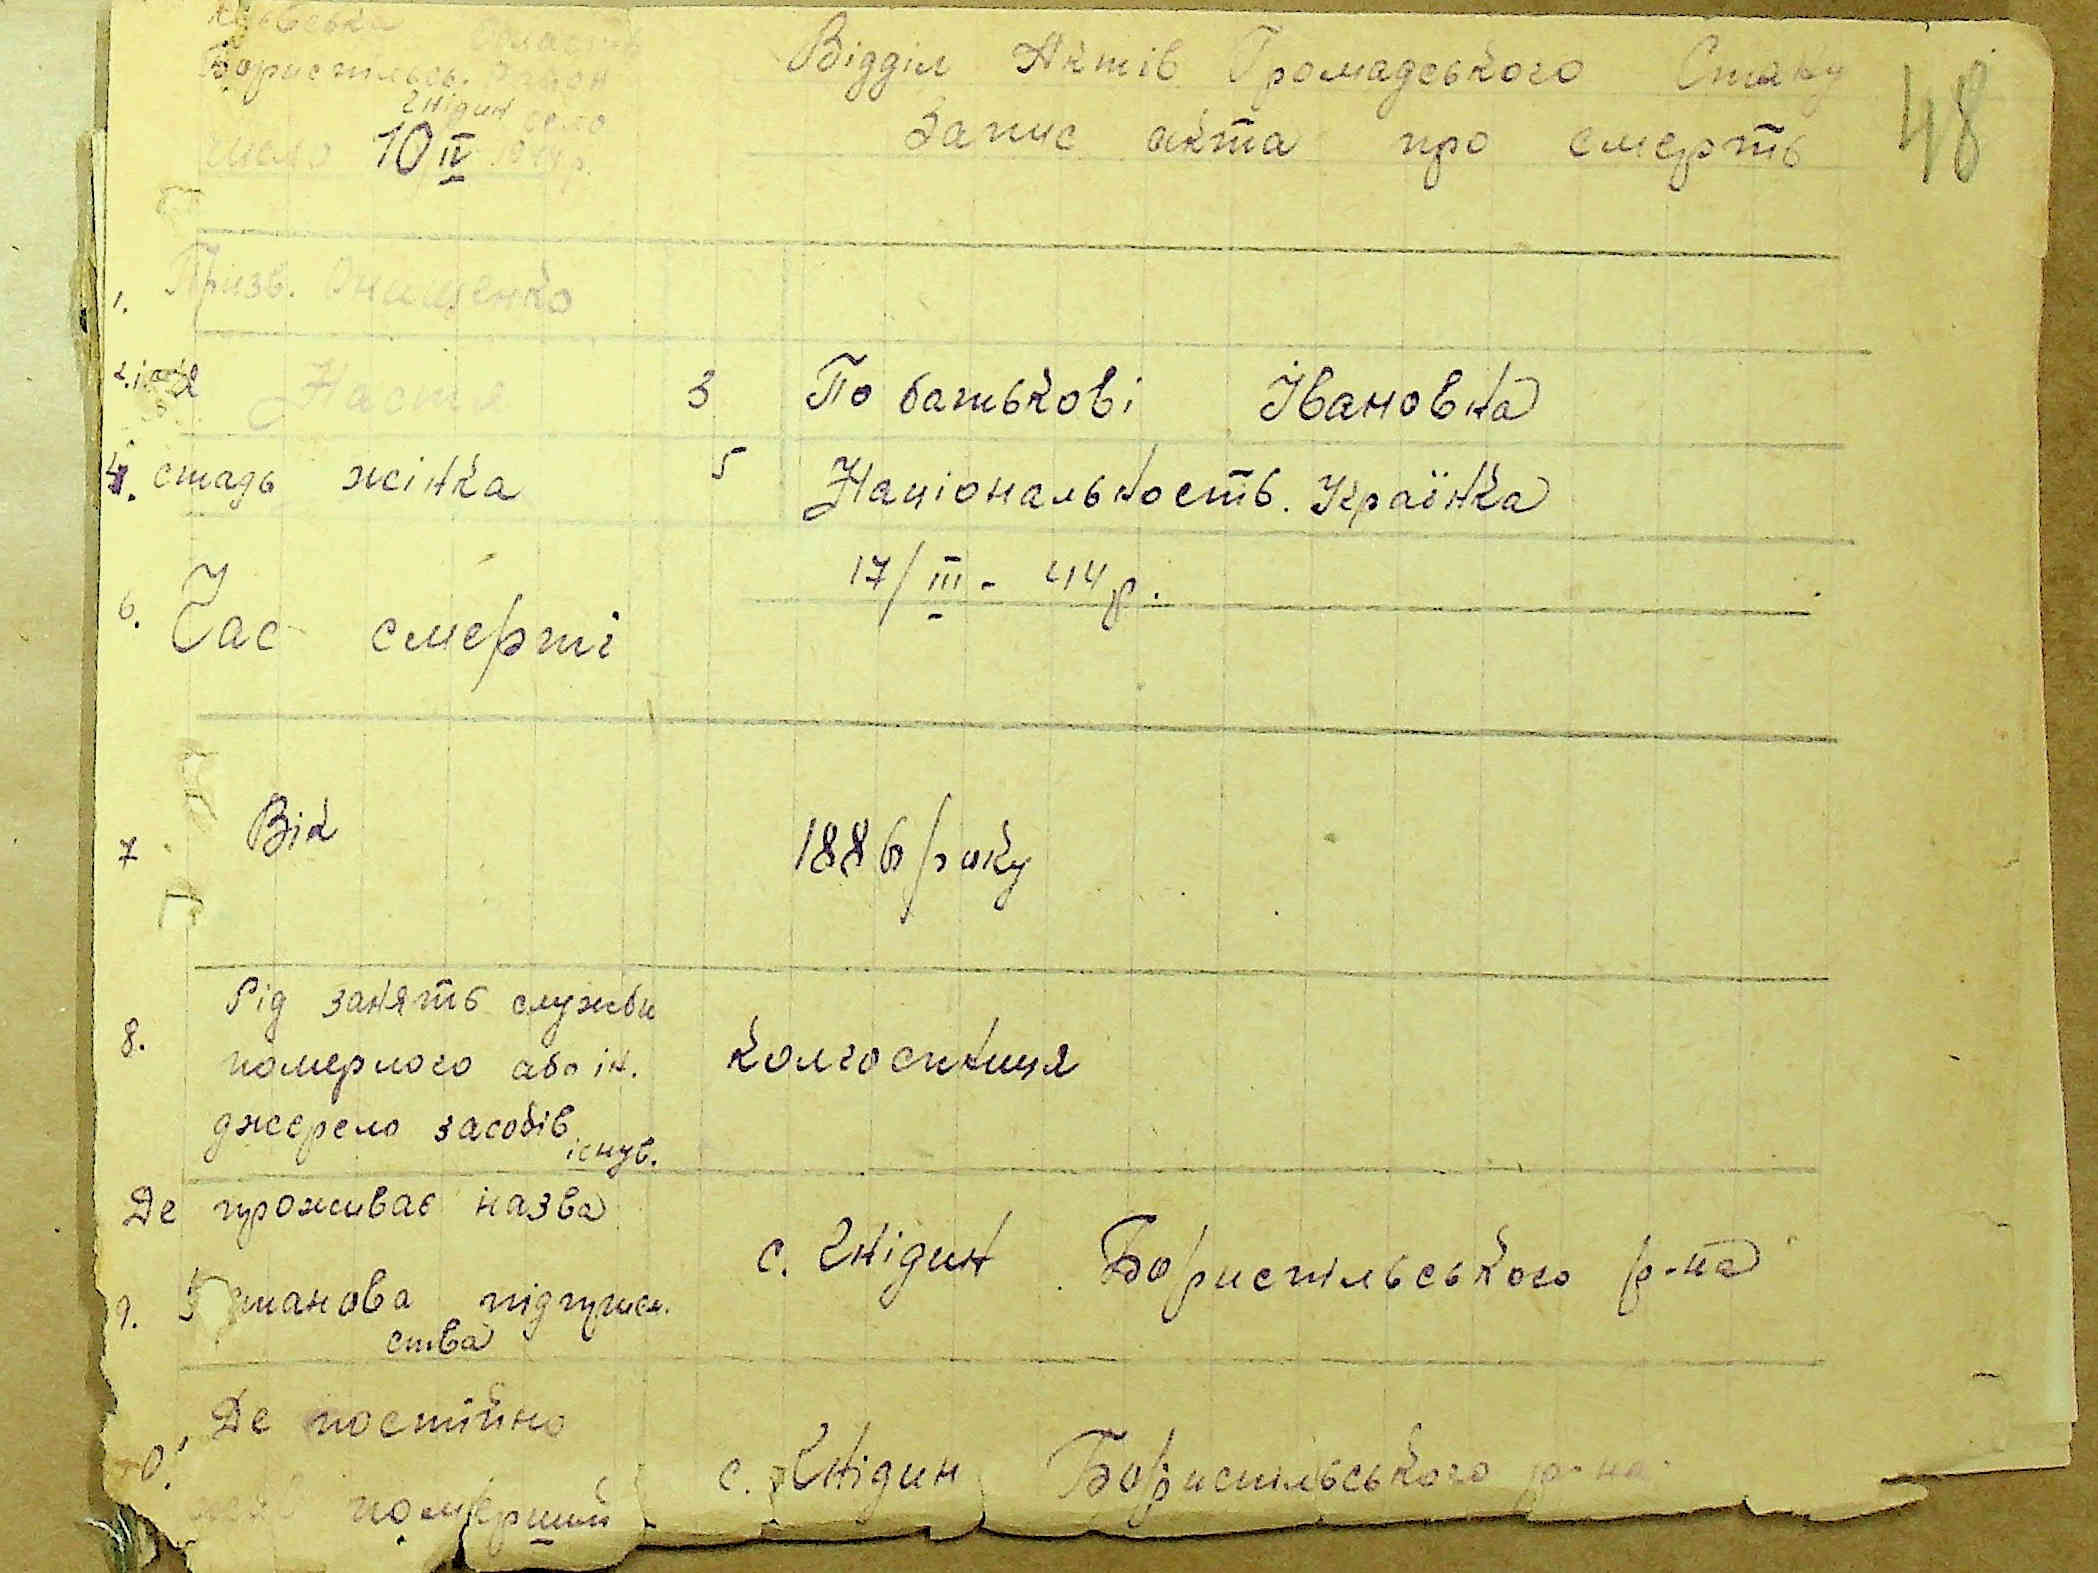 Київська Область
Бориспільсь. Район
Гнідин село
число 10 IV 1944р.
Відділ Актів Громадського Стану
Запис акта про смерть
48
1. Призв. Онищенко
2. імя Настя 3 По батькові Івановна
4. стать жінка 5 Національность. Українка
6. Час смерті 17/III - 44 р.
7 Вік 1886 року
8. Рід занять служби
померлого або ін. колгоспниця
джерело засобів
існув.
Де проживає назва
с. Гнідин Бориспільського р-на
9. установа підприєм.
ства
Де постійно
10. с. Гнідин Бориспільського р-на
жив померший